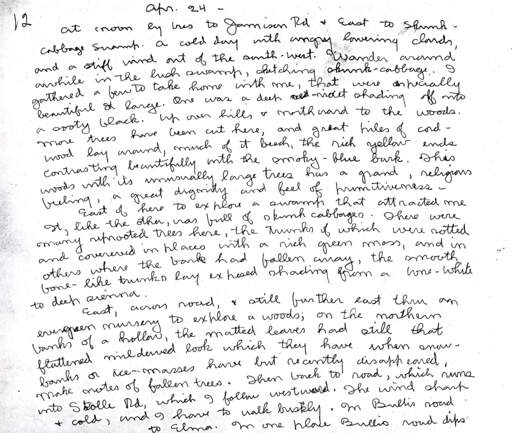 12
Apr. 24 -
at noon by bus to Jamison Rd & East to Skunk-
cabbage swamp. A cold day with angry lowering clouds,
and a stiff wind out of the south-west. Wander around
awhile in the lush swamp, sketching skunk-cabbage. I
gathered a few to take home with me, that were especially
beautiful & large. One was a deep red-violet shading off into
a sooty black. Up over hills & northward to the woods.
More trees have been cut here, and great piles of cord-
wood lay around, much of it beech, the rich yellow ends
contrasting beautifully with the smoky-blue bark. This
woods with its unusually large trees has a grand, religious
feeling, a great dignity and feel of primitiveness -
East of here to explore a swamp that attracted me
It, like the other, was full of skunk cabbages. There were
many uprooted trees here, the trunks of which were rotted
and covered in places with a rich green moss, and in
others where the bark had fallen away, the smooth
bone-like trunks lay exposed shading from a bone-white
to deep sienna.
East, across road, & still further east thru an
evergreen nursery to explore a woods; on the northern
banks of a hollow, the matted leaves had still that
flattened mildewed look which they have when snow-
banks or ice-masses have but recently disappeared,
make notes of fallen trees. Then back to road, which runs
into Stolle Rd, which I follow westward. The wind sharp
& cold, and I have to walk briskly. On Bullis road
to Elma. In one place Bullis road dips